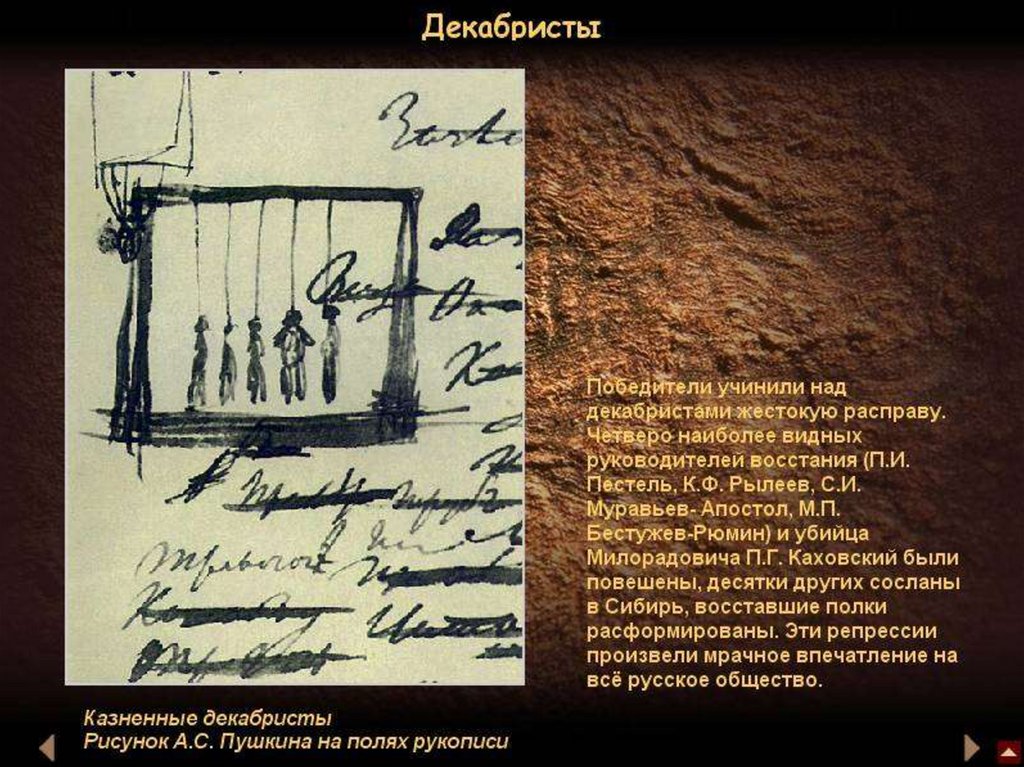 Декабристы
Победители учинили над
декабристами жестокую расправу.
Четверо наиболее видных
руководителей восстания (П.И.
Пестель, К.Ф. Рылеев, С.И.
Муравьев- Апостол, М.П.
Бестужев-Рюмин) и убийца
Милорадовича П.Г. Каховский были
повешены, десятки других сосланы
в Сибирь, восставшие полки
расформированы. Эти репрессии
произвели мрачное впечатление на
всё русское общество.
Казненные декабристы
Рисунок А.С. Пушкина на полях рукописи